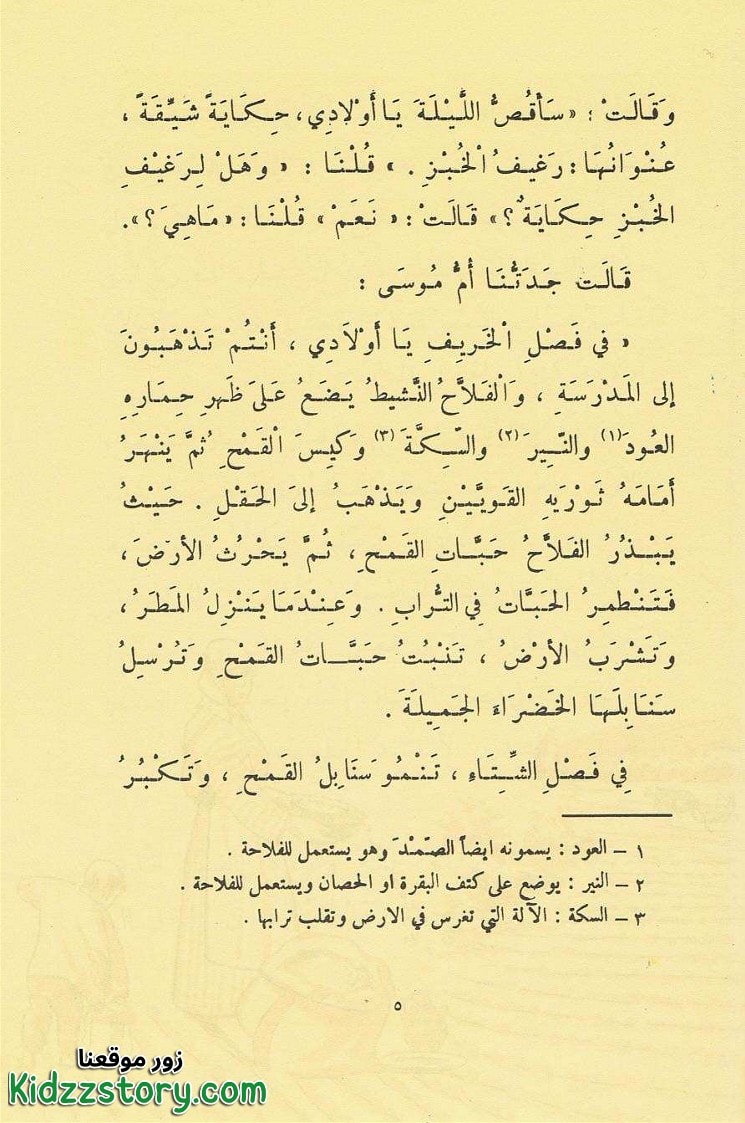 وَقَالَتْ : «سَأَقُصُّ اللَّيْلَةَ يَا أَوْلَادِي، حِكَايَةً شَيِّقَةً ،
عُنْوَانُهَا : رَغِيفُ الْخُبْزِ . » قُلْنَا : « وَهَلْ لِرَغِيْفِ
الخُبْزِ حِكَايَةٌ ؟» قَالَتْ : « نَعَمْ » قُلْنَا : « مَاهِيَ ؟».
قَالَت جَدَتُنَا أُمُّ مُوسَى :
« في فَصْلِ الْخَرِيفِ يَا أَوْلَادِي ، أَنْتُمْ تَذْهَبُونَ
إلى المَدْرَسَةِ ، وَالْفَلاَّحُ النَّشِيطُ يَضَعُ عَلىَ ظَهرِ حِمَارِهِ
العُودَ(١) والنِّيرَ(٢) والسِّكَّةَ (٣) وَكَيِسَ الْقَمْحِ ثُمَّ يَنْهَرُ
أَمَامَهُ ثَوْرَيهِ القَوِيَّيْنِ وَيَذْهَبُ إلىَ الحَقْلِ . حَيْثُ
يَبْذُرُ الفَلاَّحُ حَبَّاتِ القَمْحِ ، ثُمَّ يَحْرُثُ الأرْضَ ،
فَتَنْطَمِرُ الحَبَّاتُ فِي التُّرَابِ . وَعِنْدَمَا يَنْزِلُ المَطَرُ ،
وَتَشْرَبُ الأرْضُ ، تَنْبُتُ حَبَّاتُ القَمْحِ وَتُرْسِلُ
سَنَابِلَهَا الخَضْرَاءَ الجَمِيلَةَ .
فِي فَصْلِ الشِّتَاءِ ، تَنْمُو سَنَابِلُ القَمْحِ ، وَتَكْبُرُ
١ – العود : يسمونه ايضاً الصّمْدَ وهو يستعمل للفلاحة .
٢ – النير : يوضع على كتف البقرة او الحصان ويستعمل للفلاحة .
٣ – السكة : الآلة التي تغرس في الارض وتقلب ترابها .
٥
زور موقعنا
Kidzzstory.com